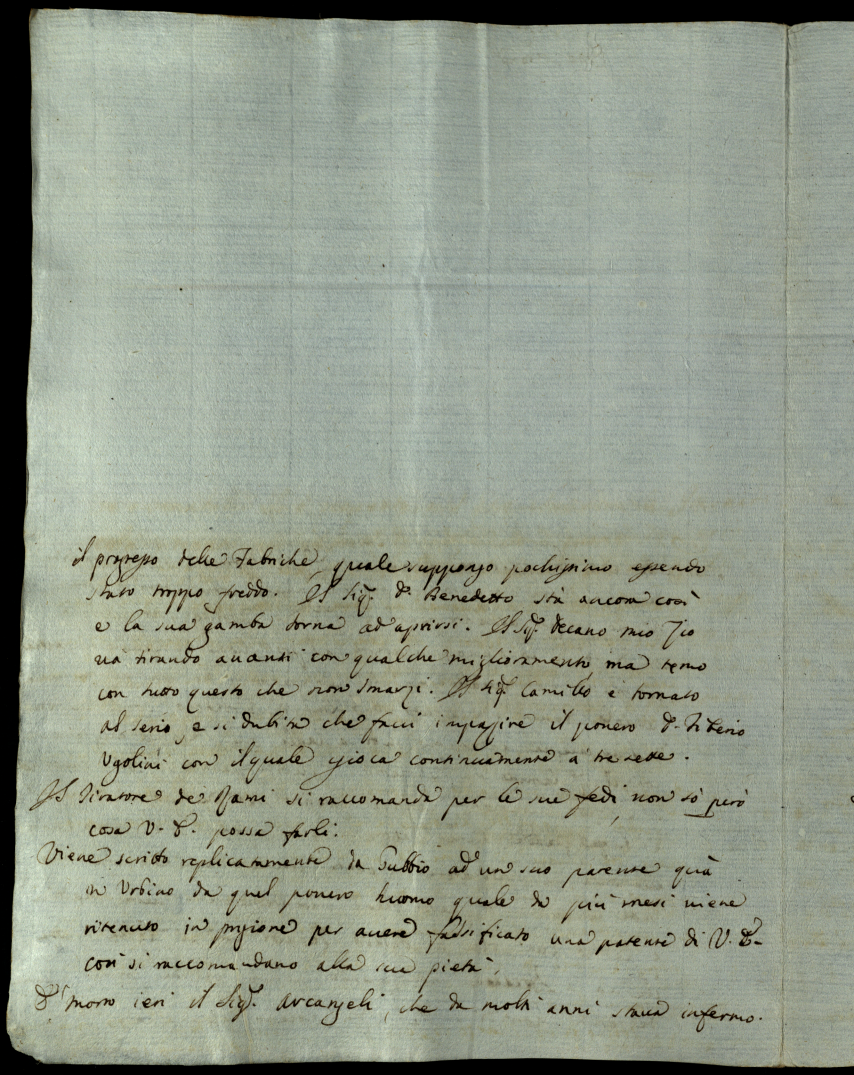 il progresso delle Fabriche, quale suppongo pochissimo essendo
stato troppo freddo. Il Sig.r D. Benedetto stà ancora così
e la sua gamba torna ad aprirsi. Il Sig.r Decano mio Zio
và tirando avanti con qualche miglioramento, ma temo
con tutto questo che non smarzi. Il Sig.r Camillo è tornato
al serio, e si dubita che facci impazzire il povero D. Tiberio
Ugolini con il quale gioca continuamente a tre sette.
Il Tiratore de Rami si raccomanda per le sue fedi, non sò però
cosa V. S. possa farli.
Viene scritto replicatamente da Gubbio ad un suo parente quà
in Urbino da quel povero huomo quale da più mesi viene
ritenuto in prigione per avere falsificato una patente di V. S.
così si raccomandano alla sua pietà.
È morto ieri il Sig.r Arcangeli, che da molti anni stava infermo.